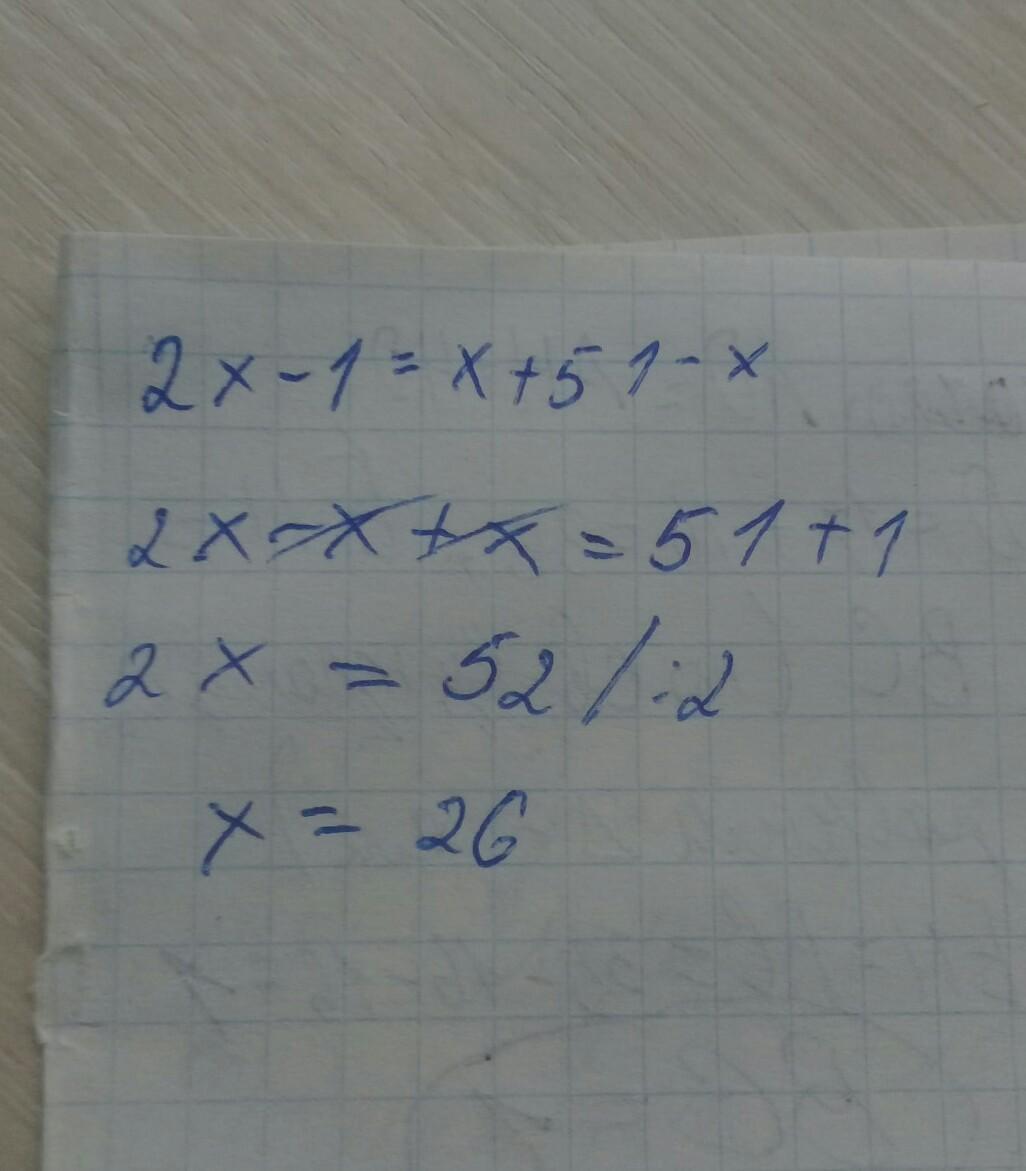 2x-1=x+51-x
2x-x+x=51+1
2x=52/:2
x=26